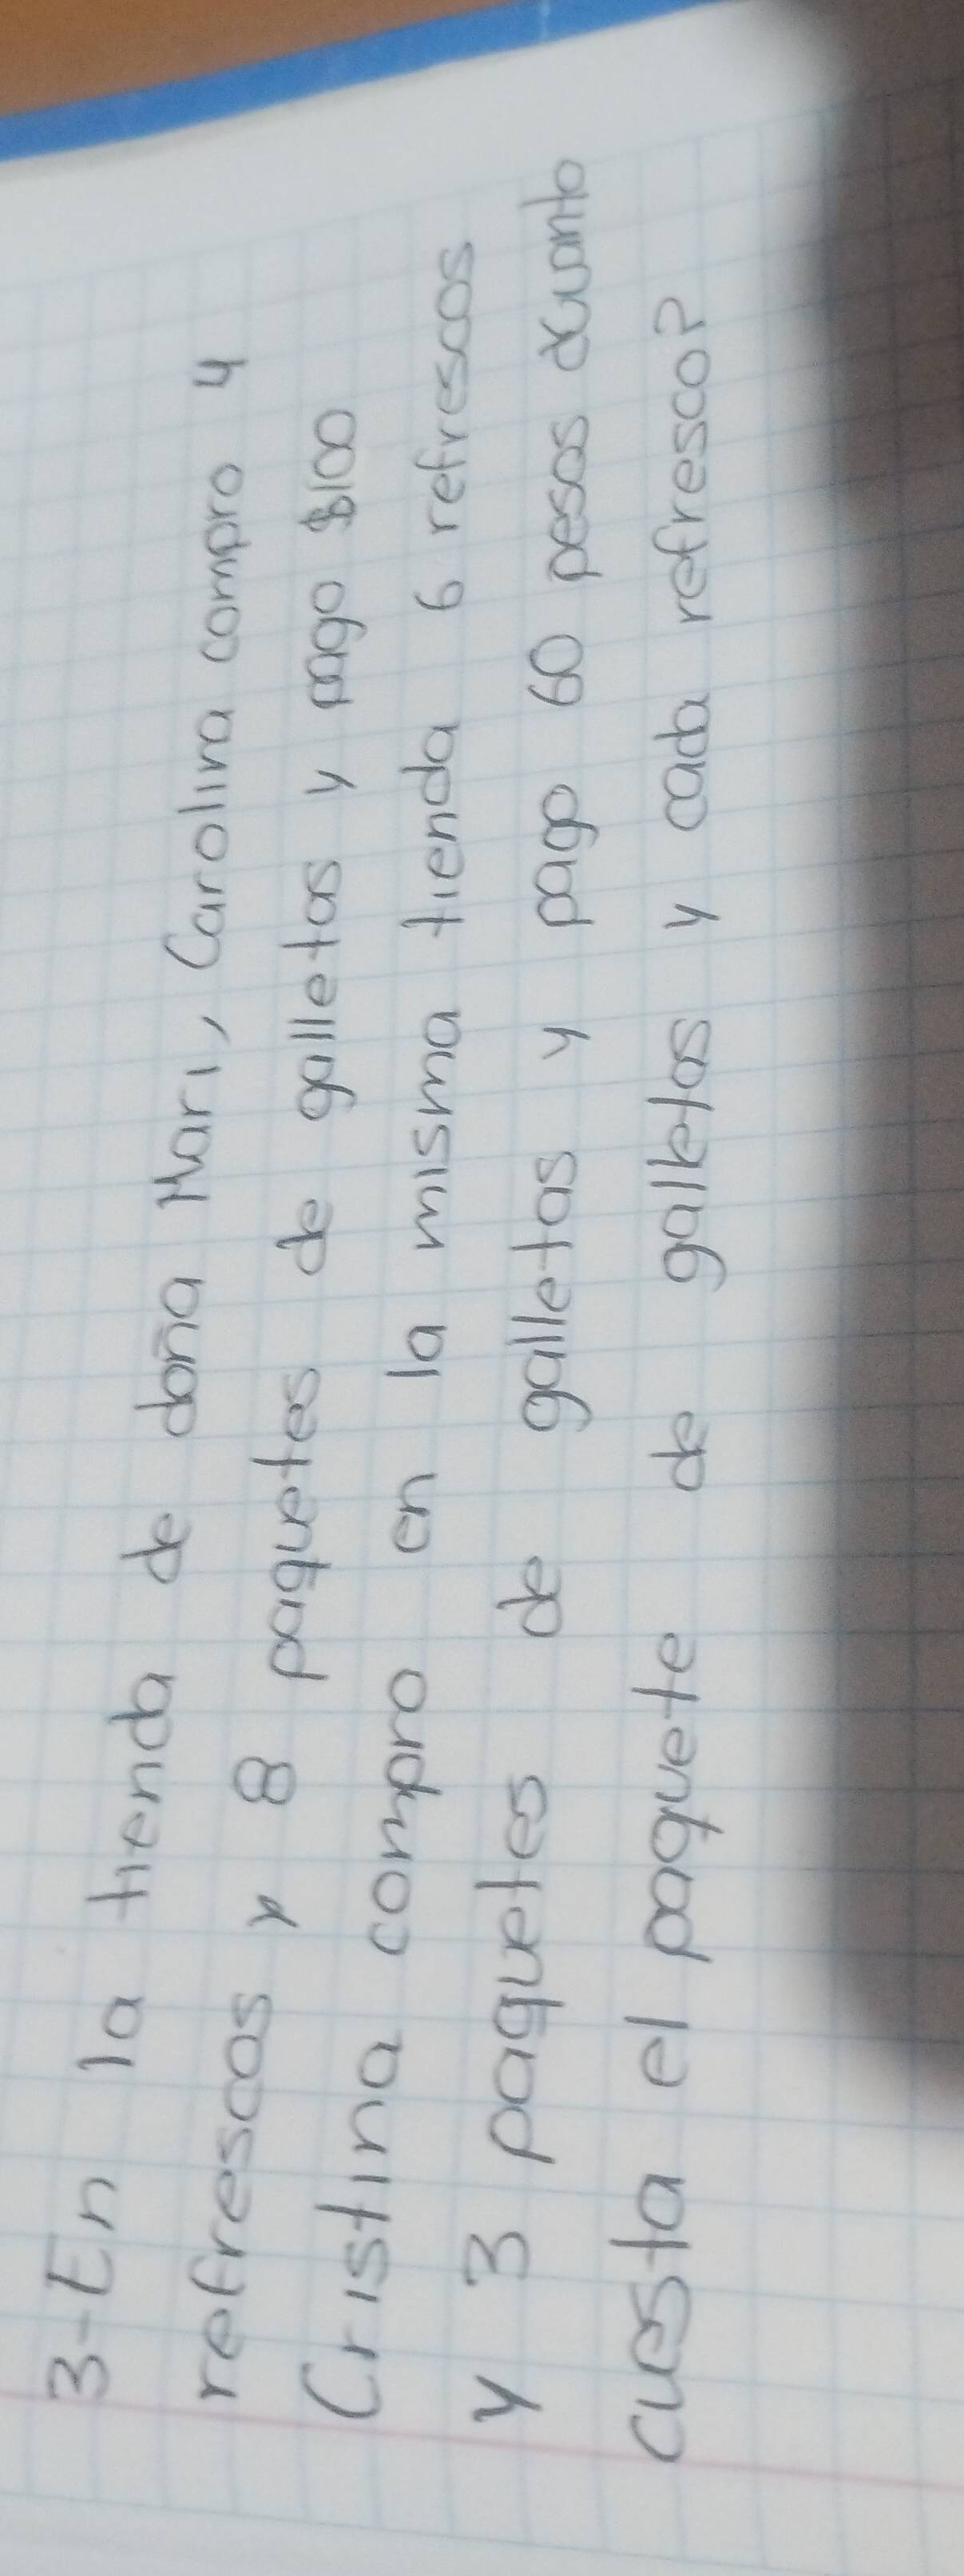 3-En la tienda de doña Mari, Carolina compro 4
refrescos y 8 paquetes de galletas y pago $100
Cristina compro en la misma tienda 6 refrescos
y 3 paquetes de galletas y pago 60 pesos cuanto
cuesta el paquete de galletas y cada refresco?